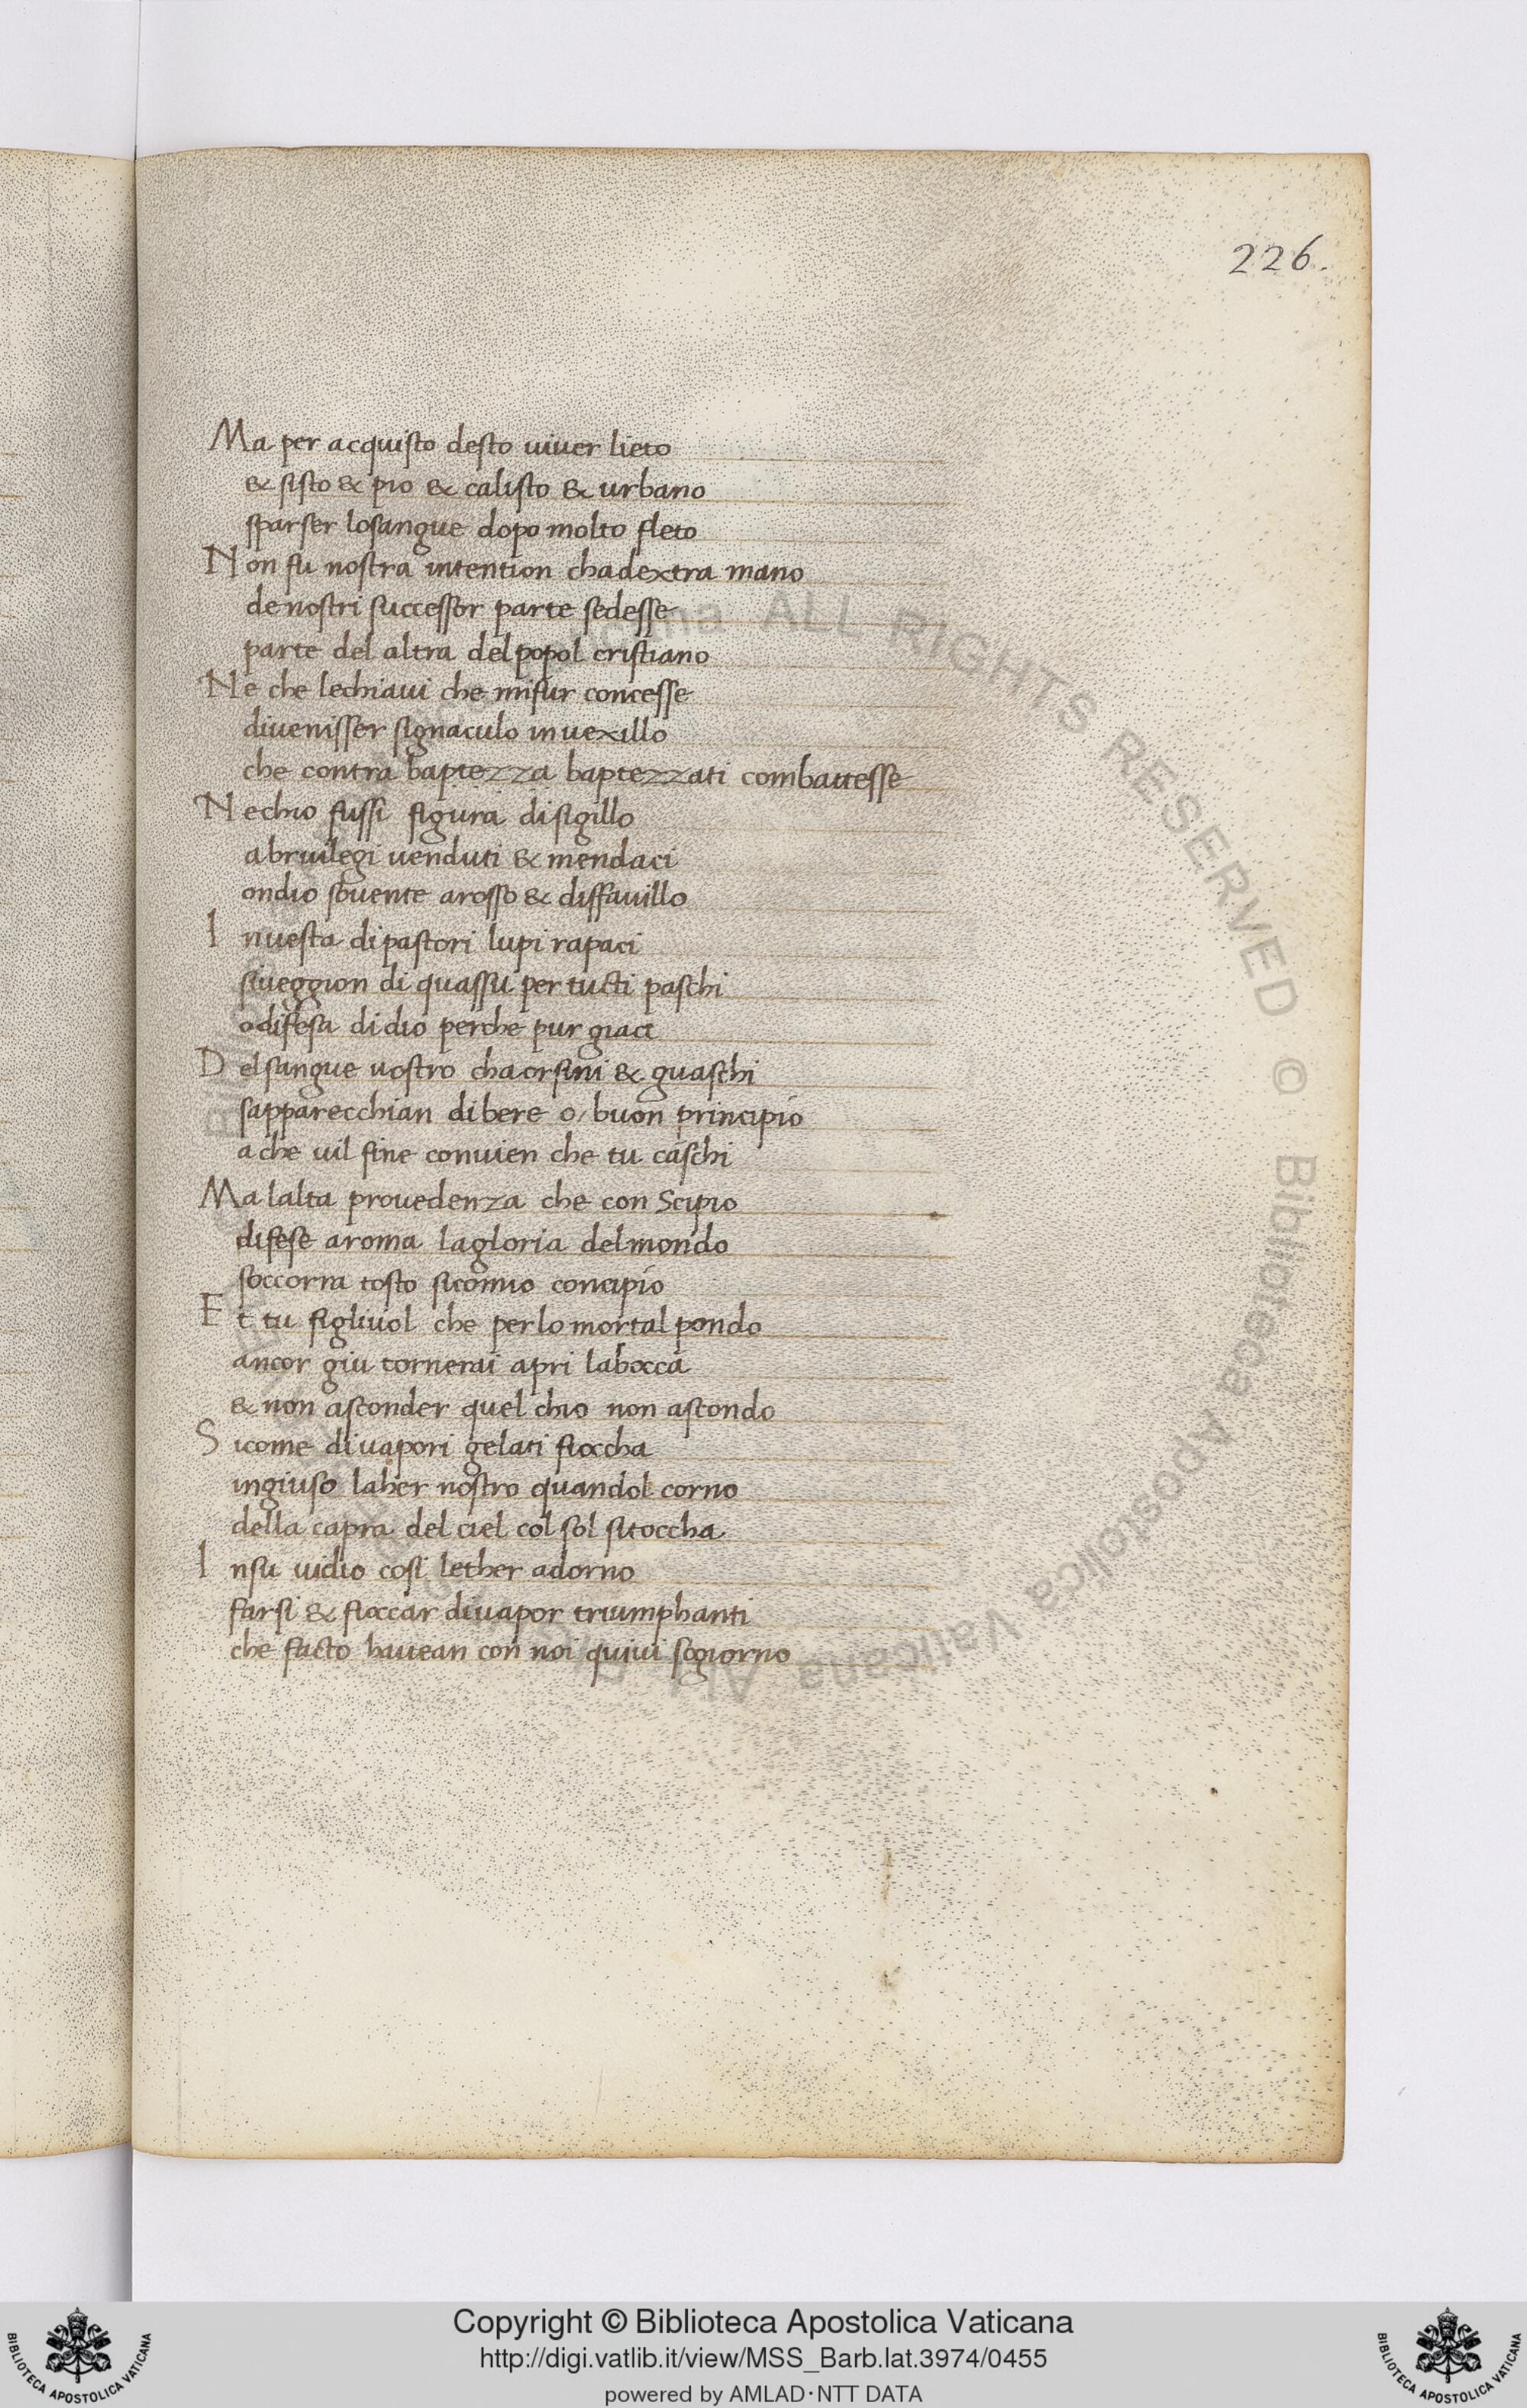 226.
Ma per acquisto desto uiuer lieto
& sisto & pio & calisto & urbano
sparser losangue dopo molto fleto
Non fu nostra intention chadextra mano
de nostri successor parte sedesse
parte del altra del popol cristiano
Ne che lechiaui che mifur concesse
diuenisser signaculo in uexillo
che contra baptezza baptezzati combattesse
Nechio fussi figura disigillo
abriuilegi uenduti & mendaci
ondio souente arosso & diffauillo
Inuesta dipastori lupi rapaci
siueggion di quassu per tucti paschi
odifesa di dio perche pur giaci
Del sangue uostro chaorsini & guaschi
sapparecchian di bere o, buon principio
a che uil fine conuien che tu caschi
Ma lalta prouedenza che con Scipio
difese aroma lagloria delmondo
soccorra tosto sicomio concipio
Et tu figliuol che perlo mortal pondo
ancor giu tornerai apri labocca
& non asconder quel chio non ascondo
Sicome diuapori gelati fioccha
ingiuso laher nostro quandol corno
della capra del ciel col sol sitoccha
Insu uidio cosi lether adorno
farsi & fioccar diuapor triumphanti
che facto hauean con noi quiui sogiorno
Biblioteca Apostolica Vaticana ALL RIGHTS RESERVED © Biblioteca Apostolica Vaticana ALL RIGHTS RESERVED
Copyright © Biblioteca Apostolica Vaticana
http://digi.vatlib.it/view/MSS_Barb.lat.3974/0455
powered by AMLAD·NTT DATA
BIBLIOTECA APOSTOLICA VATICANA
BIBLIOTECA APOSTOLICA VATICANA